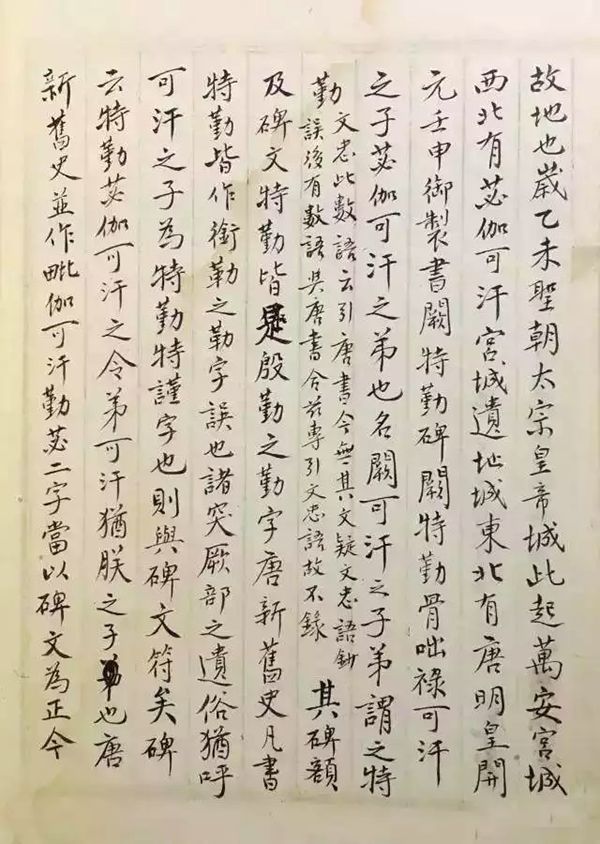 故地也歲乙未聖朝太宗皇帝城此起萬安宮城
西北有苾伽可汗宮城遺地城東北有唐明皇開
元壬申御製書闕特勤碑闕特勤骨咄祿可汗
之子苾伽可汗之弟也名闕可汗之子弟謂之特
勤
文忠此數語云引唐書今無其文疑文忠語鈔
誤後有數語吳唐書合茲專引文忠語故不錄
其碑額
及碑文特勤皆是殷勤之勤字唐新舊史凡書
特勤皆作銜勒之勒字誤也諸突厥部之遺俗猶呼
可汗之子為特勤特謹字也則與碑文符矣碑
云特勤苾伽可汗之令弟可汗猶朕之子也唐
新舊史並作毗伽可汗勤苾二字當以碑文為正今